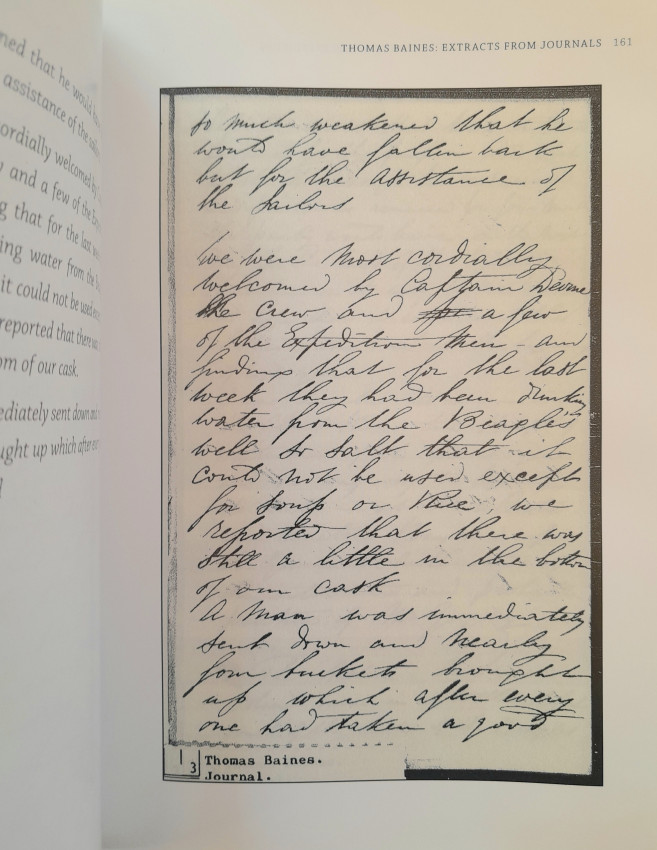 ned that he would
assistance of the
cordially welcomed
and a few of the
g that for the last
ing water from the
it could not be used
reported that there was
om of our cask.
ediately sent down and
ught up which after
THOMAS BAINES: EXTRACTS FROM JOURNALS 161
so much weakened that he
would have fallen back
but for the assistance of
the sailors
We were most cordially
welcomed by Captain Devine
the crew and a few
of the Expedition men - and
finding that for the last
week they had been drinking
water from the Beagles
well so salt that it
could not be used except
for soup or Rice, we
reported that there was
still a little in the bottom
of our cask
A man was immediately
sent down and nearly
four buckets brought
up which after every
one had taken a good
3
Thomas Baines.
Journal.